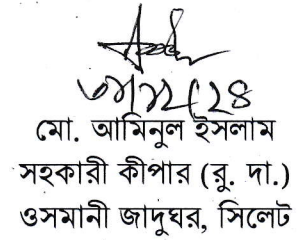 ৩১/১২/২৪
মো. আমিনুল ইসলাম
সহকারী কীপার (রু. দা.)
ওসমানী জাদুঘর, সিলেট